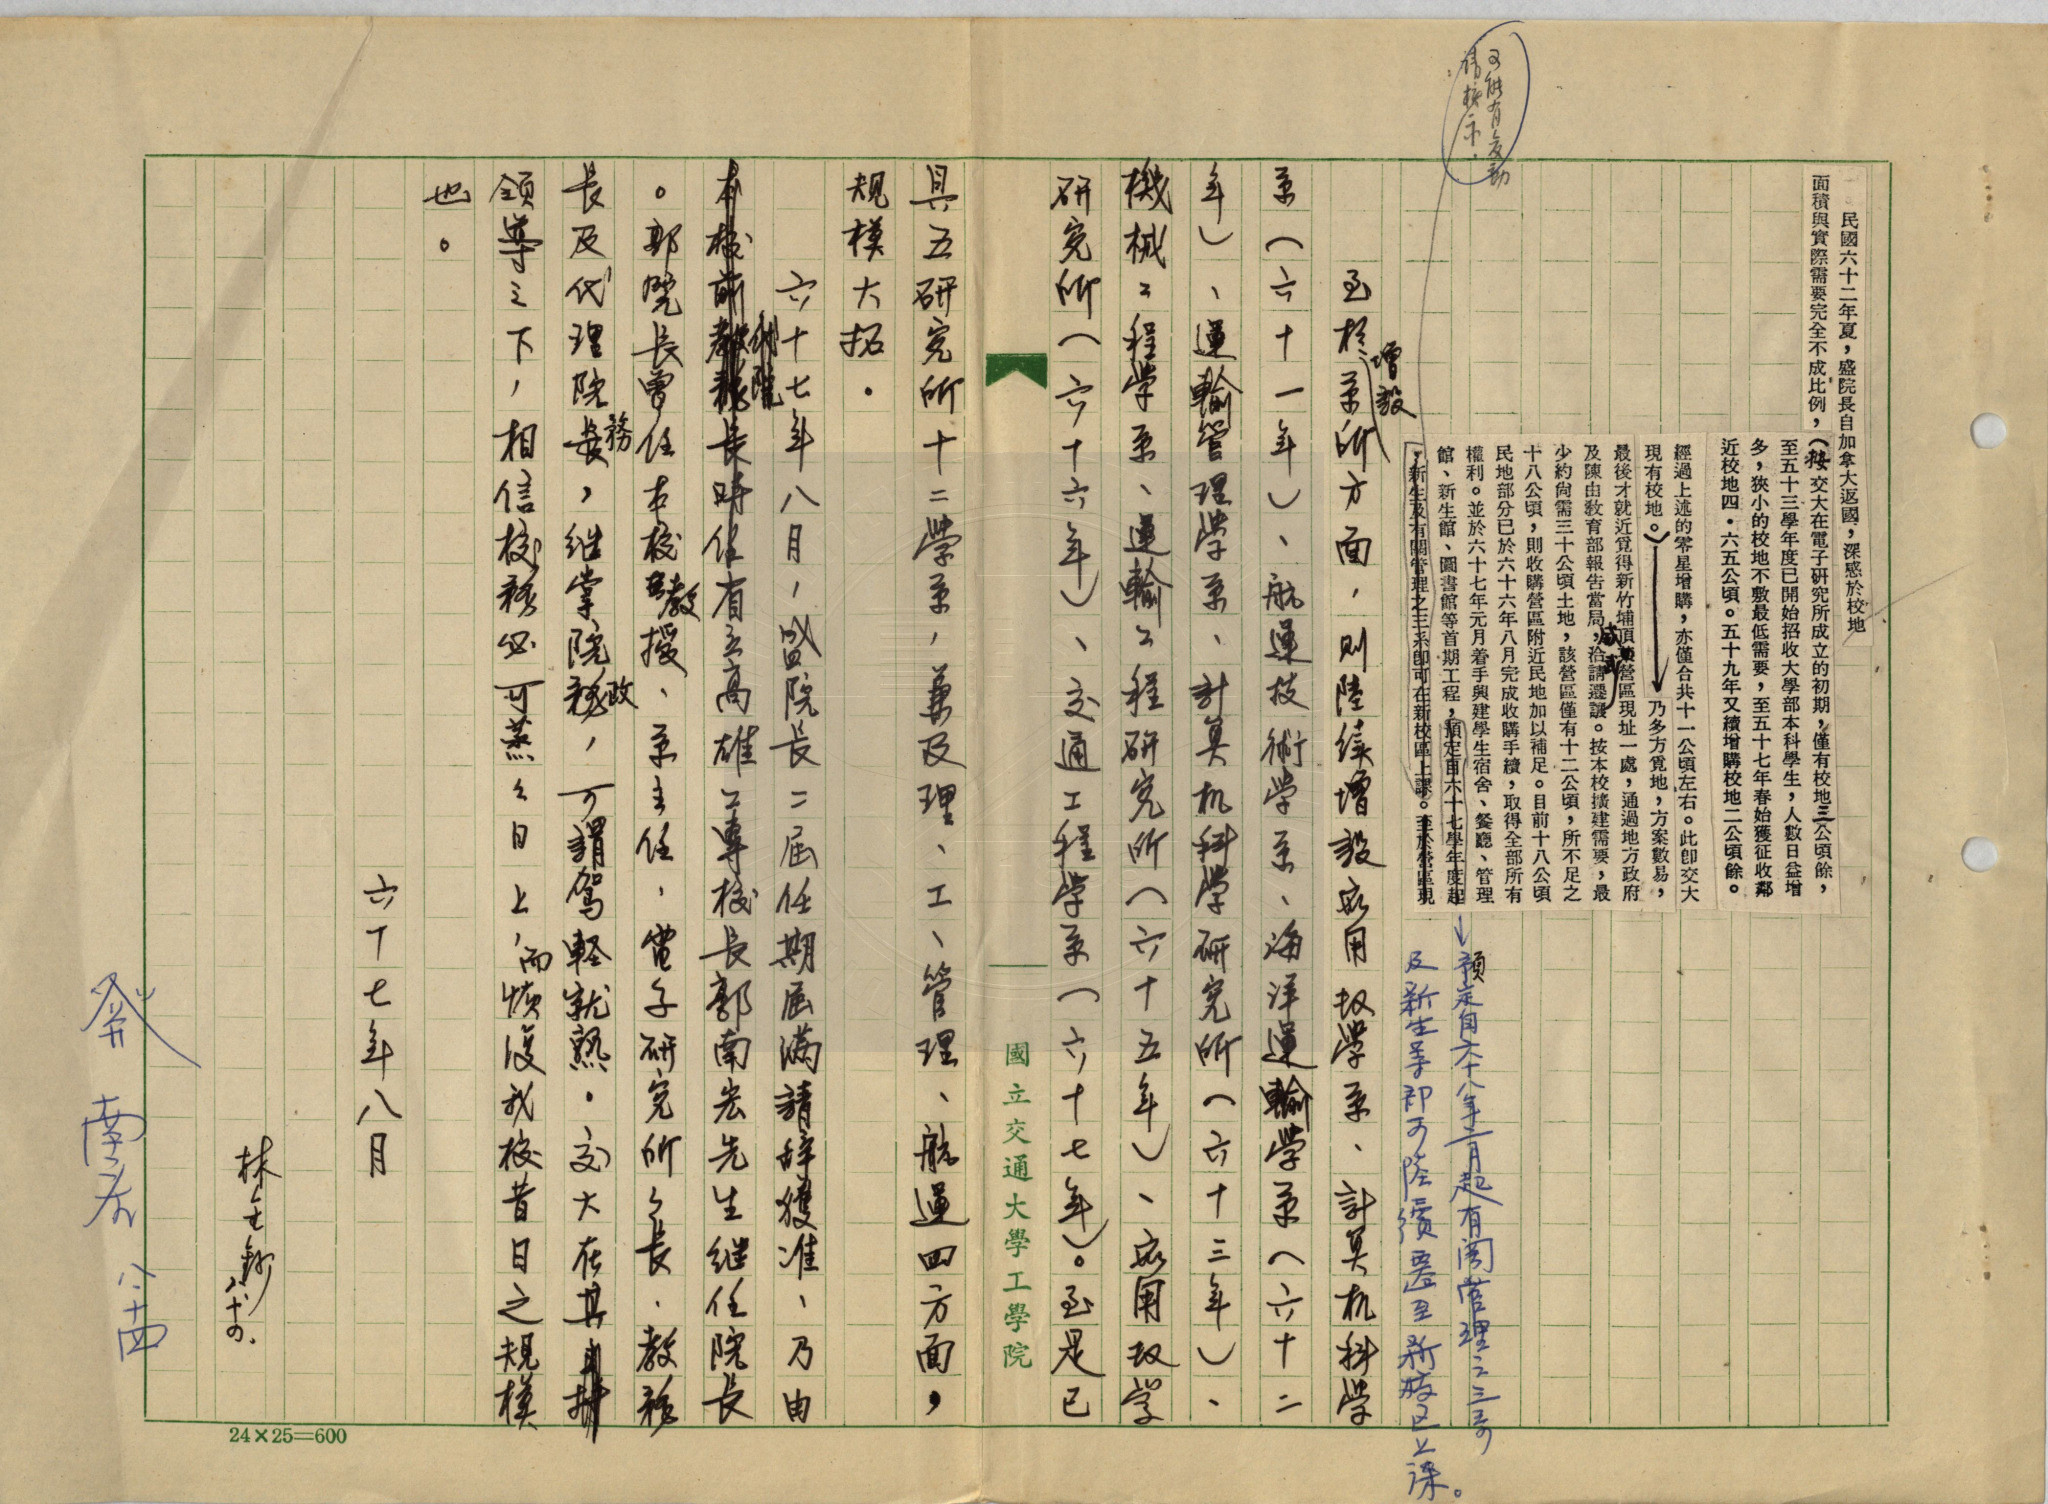 可能有變動
請核示．
民國六十二年夏，盛院長自加拿大返國，深感於校地
面積與實際需要完全不成比例，
（按交大在電子研究所成立的初期，僅有校地三公頃餘，
至五十三學年度已開始招收大學部本科學生，人數日益增
多，狹小的校地不敷最低需要，至五十七年春始獲征收鄰
近校地四．六五公頃。五十九年又續增購校地二公頃餘。
經過上述的零星增購，亦僅合共十一公頃左右。此卽交大
現有校地。）乃多方覓地，方案數易，
最後才就近覓得新竹埔頂營區現址一處，通過地方政府
及陳由教育部報告當局，洽請遷讓。按本校擴建需要，最
威武
少約尙需三十公頃土地，該營區僅有十二公頃，所不足之
十八公頃，則收購營區附近民地加以補足。目前十八公頃
民地部分已於六十六年八月完成收購手續，取得全部所有
權利。並於六十七年元月着手興建學生宿舍、餐廳、管理
館、新生館、圖書館等首期工程，預定自六十七學年度起
，新生及有關管理之三系卽可在新校區上課。至於營區現
預定自六十八年二月起有関管理之三系
及新生等即可陸續遷至新校区上課。
至於系所方面，則陸續增設应用数學系、計算机科学
增設
系（六十一年）、航運技術学系、海洋運輸学系（六十二
年）、運輸管理学系、計算机科学研究所（六十三年）、
機械工程学系、運輸工程研究所（六十五年）、应用数学
研究所（六十六年）、交通工程学系（六十七年）。至是已
具五研究所十二學系，兼及理、工、管理、航運四方面，
規模大拓．
六十七年八月，盛院長二屆任期屆滿請辞獲准、乃由
本校前教務長時任省立高雄工專校長郭南宏先生継任院長
代院
。郭院長曾任本校教授、系主任，電子研究所々長．教務
長及代理院長，継掌院務，可謂駕軽就熟．交大在其
務
政
領導之下，相信校務必可蒸々日上，而恢復我校昔日之規模
也。
六十七年八月
林
南宏
國立交通大學工學院
24×25=600